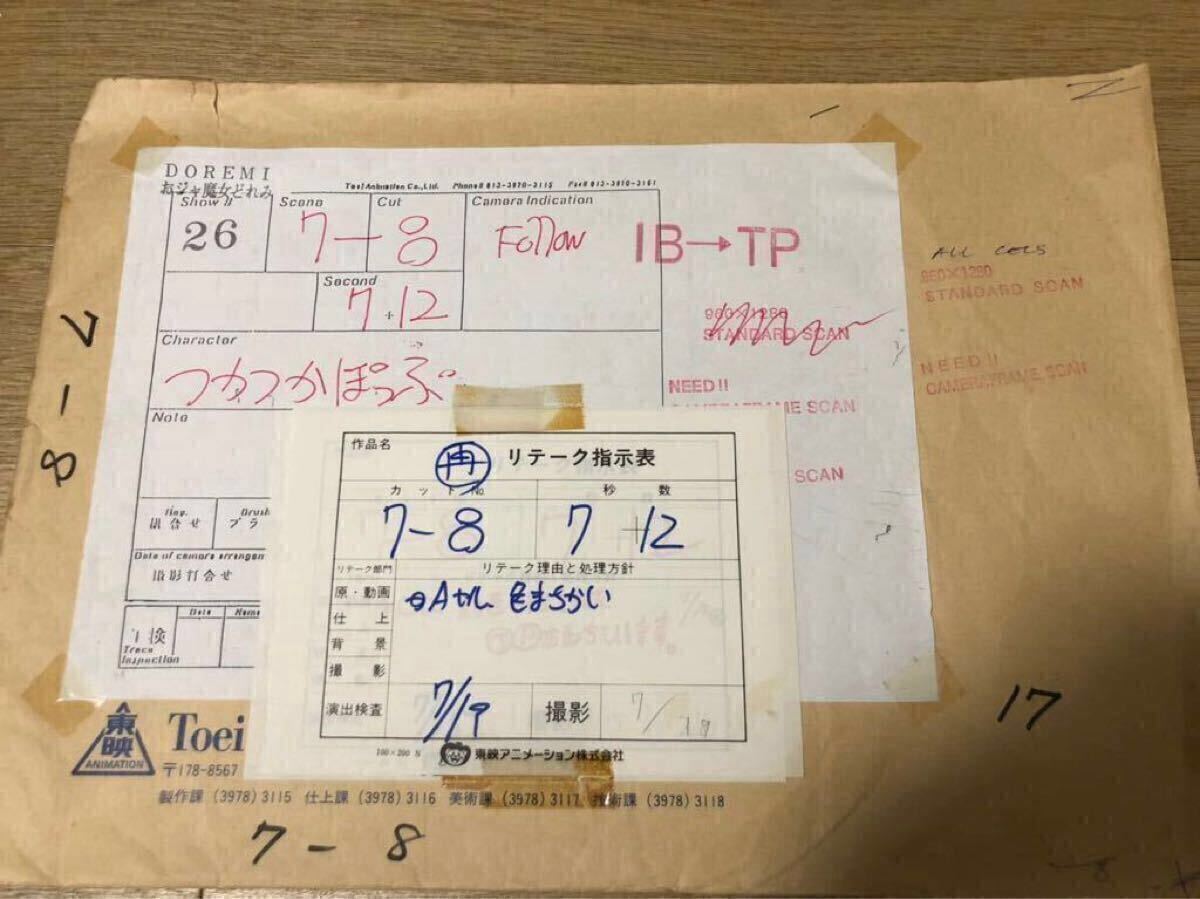 DOREMI
おジャ魔女どれみ
Toei Animation Co.,Ltd. Phone# 813-3978-3115 Fax# 813-3978-3161
Show #
Scene
Cut
Camera Indication
26
7-8
Follow
IB→TP
Second
7+12
ALL CELS
960×1280
STANDARD SCAN
960×1280
STANDARD SCAN
NEED!!
CAMERAFRAME SCAN
NEED!!
CAMERAFRAME SCAN
SCAN
Character
つかつかぽっぷ
Note
組合せ
Brush
ブラ
Date of camera arrangement
撮影打合せ
Date
Name
Trace
Inspection
7-8
作品名
再
リテーク指示表
カットNo.
秒数
7-8
7+12
リテーク部門
リテーク理由と処理方針
原・動画
Aセル 色まちがい
仕上
背景
撮影
演出検査
7/19
撮影
7/18
100×200 N
東映アニメーション株式会社
17
東映
ANIMATION
Toei
〒178-8567
製作課 (3978) 3115 仕上課 (3978) 3116 美術課 (3978) 3117 技術課 (3978) 3118
7-8